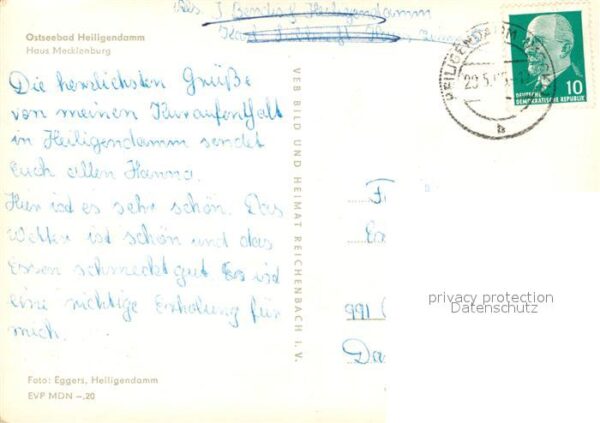 Abs. J. Bendis, Heiligendamm
Ostseebad Heiligendamm
Haus Mecklenburg
Die herzlichsten Grüße
von meinen Kuraufenthalt
in Heiligendamm sendet
Euch allen Hanna.
Hier ist es sehr schön. Das
Wetter ist schön und das
Essen schmeckt gut. Es ist
eine richtige Erholung für
mich.
Foto: Eggers, Heiligendamm
EVP MDN –,20
VEB BILD UND HEIMAT REICHENBACH I. V.
HEILIGENDAMM
29.5.
b
DEUTSCHE
DEMOKRATISCHE REPUBLIK
10
991
Da
privacy protection
Datenschutz